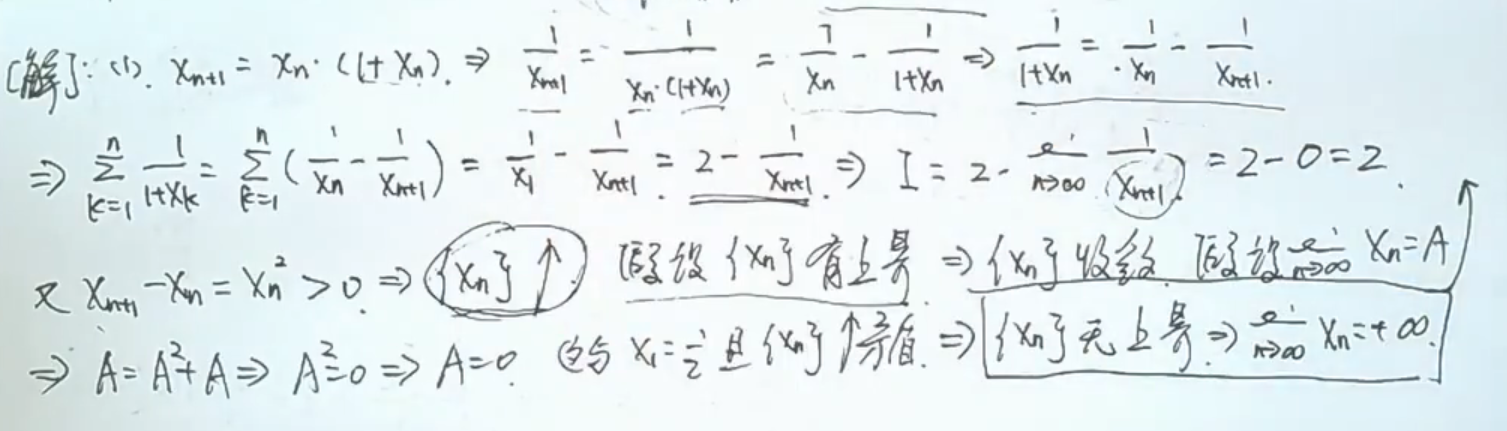 [解]: (1). xₙ₊₁ = xₙ·(1+xₙ). ⇒ 1/xₙ₊₁ = 1/(xₙ·(1+xₙ)) = 1/xₙ - 1/(1+xₙ) ⇒ 1/(1+xₙ) = 1/xₙ - 1/xₙ₊₁.
⇒ ∑ₖ₌₁ⁿ 1/(1+xₖ) = ∑ₖ₌₁ⁿ (1/xₙ - 1/xₙ₊₁) = 1/x₁ - 1/xₙ₊₁ = 2 - 1/xₙ₊₁. ⇒ I = 2 - lim n→∞ 1/xₙ₊₁ = 2-0=2.
又 xₙ₊₁-xₙ = xₙ² > 0. ⇒ {xₙ}↑ 假设{xₙ}有上界. ⇒ {xₙ}收敛. 假设 lim n→∞ xₙ=A
⇒ A=A²+A ⇒ A²=0 ⇒ A=0. 这与 x₁=1/2 且{xₙ}↑矛盾. ⇒ {xₙ}无上界 ⇒ lim n→∞ xₙ=+∞.